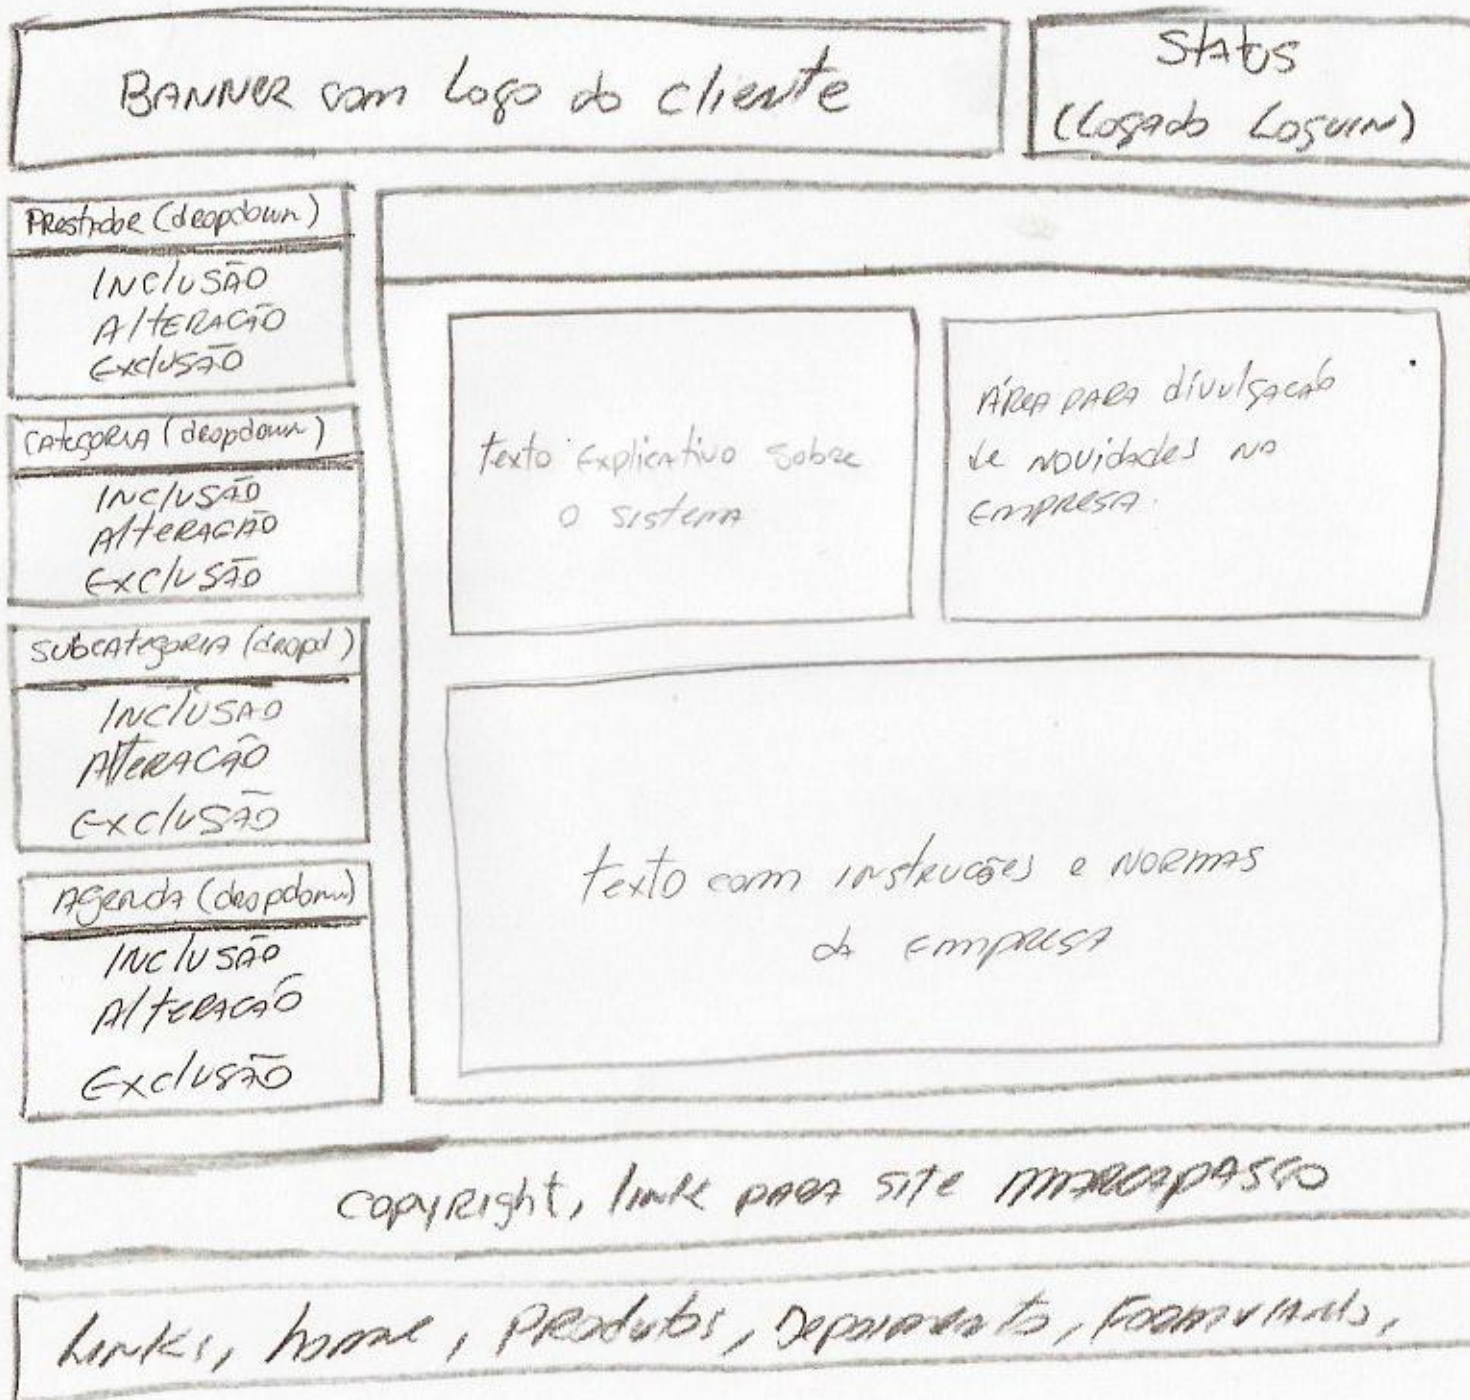 BANNER com Logo do cliente
Status
(Logado Loguin)
Prestador (dropdown)
INCLUSÃO
AlTERAÇÃO
EXCLUSÃO
CATEGORIA (dropdown)
INCLUSÃO
AlTERAÇÃO
EXCLUSÃO
SUBCATEGORIA (dropd)
INCLUSAO
AlTERAÇÃO
EXCLUSÃO
AGENDA (dropdown)
INCLUSÃO
AlTERAÇÃO
EXCLUSÃO
texto Explicativo sobre
o sistema
ÁREA PARA divulgação
de NOVIdades NA
EMPRESA.
texto com instruções e NORMAS
da EMPRESA
copyright, link PARA site MARCAPASSO
Links, home, PRodutos, Depoimento, FORMULÁRIO,